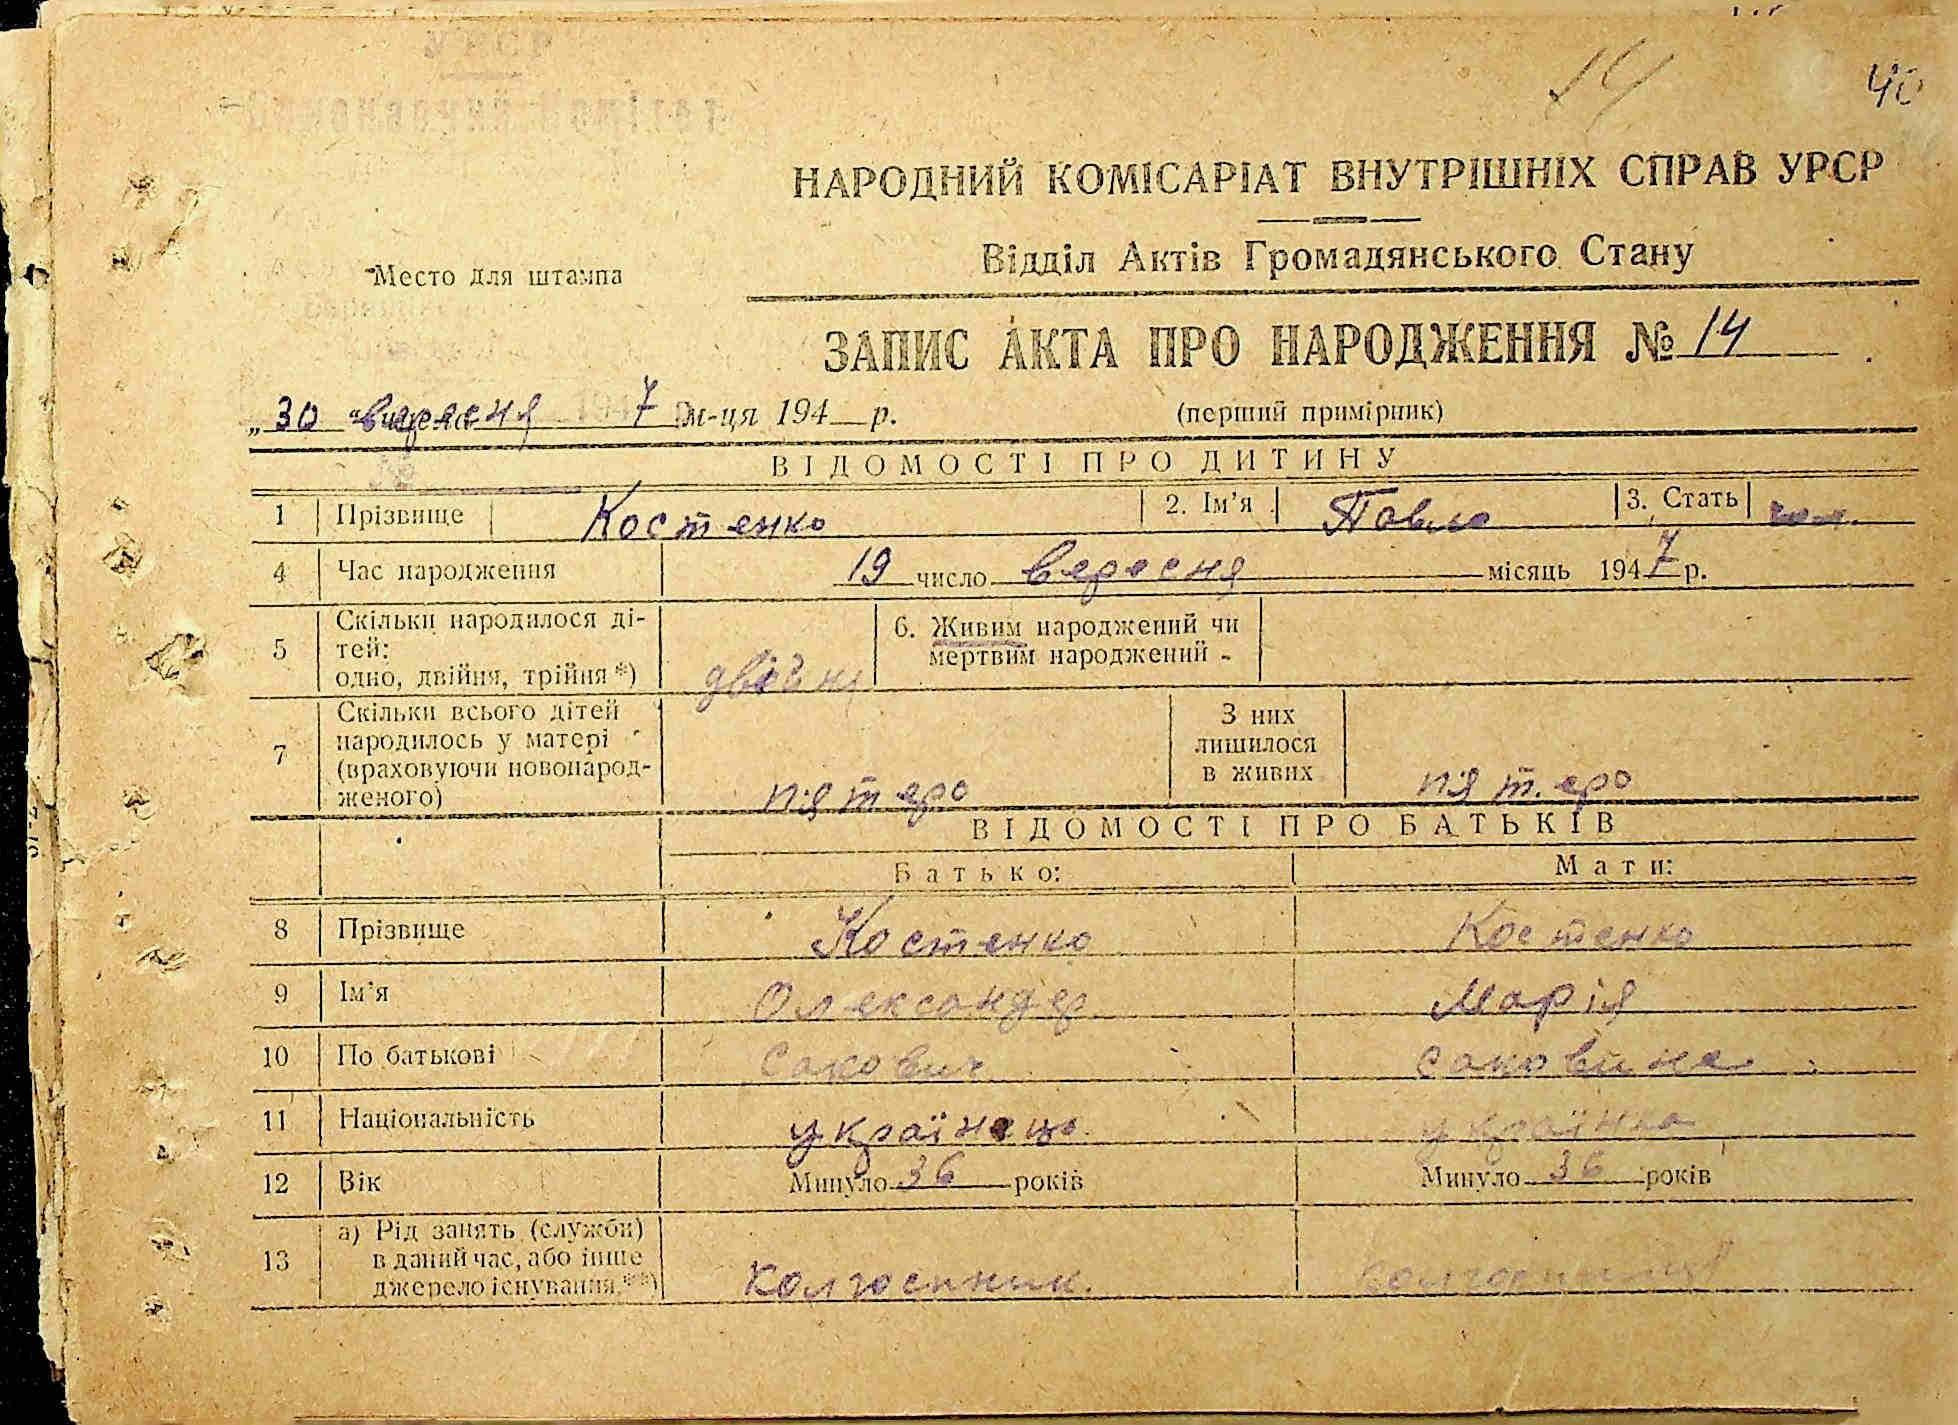 14 40
НАРОДНИЙ КОМІСАРІАТ ВНУТРІШНІХ СПРАВ УРСР
Відділ Актів Громадянського Стану
Место для штампа
ЗАПИС АКТА ПРО НАРОДЖЕННЯ № 14
„30 " вересня 7 м-ця 194 р.
(перший примірник)
ВІДОМОСТІ ПРО ДИТИНУ
1 Прізвище Костенко 2. Ім'я Павло 3. Стать чол.
4 Час народження 19 число вересня місяць 1947 р.
5 Скільки народилося ді-
тей:
одно, двійня, трійня *) двійня
6. Живим народжений чи
мертвим народжений -
7 Скільки всього дітей
народилось у матері
(враховуючи новонарод-
женого) п'ятеро
З них
лишилося
в живих п'ятеро
ВІДОМОСТІ ПРО БАТЬКІВ
Батько: Мати:
8 Прізвище Костенко Костенко
9 Ім'я Олександер Марія
10 По батькові
11 Національність українець українка
12 Вік Минуло 36 років Минуло 36 років
13 а) Рід занять (служби)
в даний час, або інше
джерело існування **) колгоспник. колгоспниця